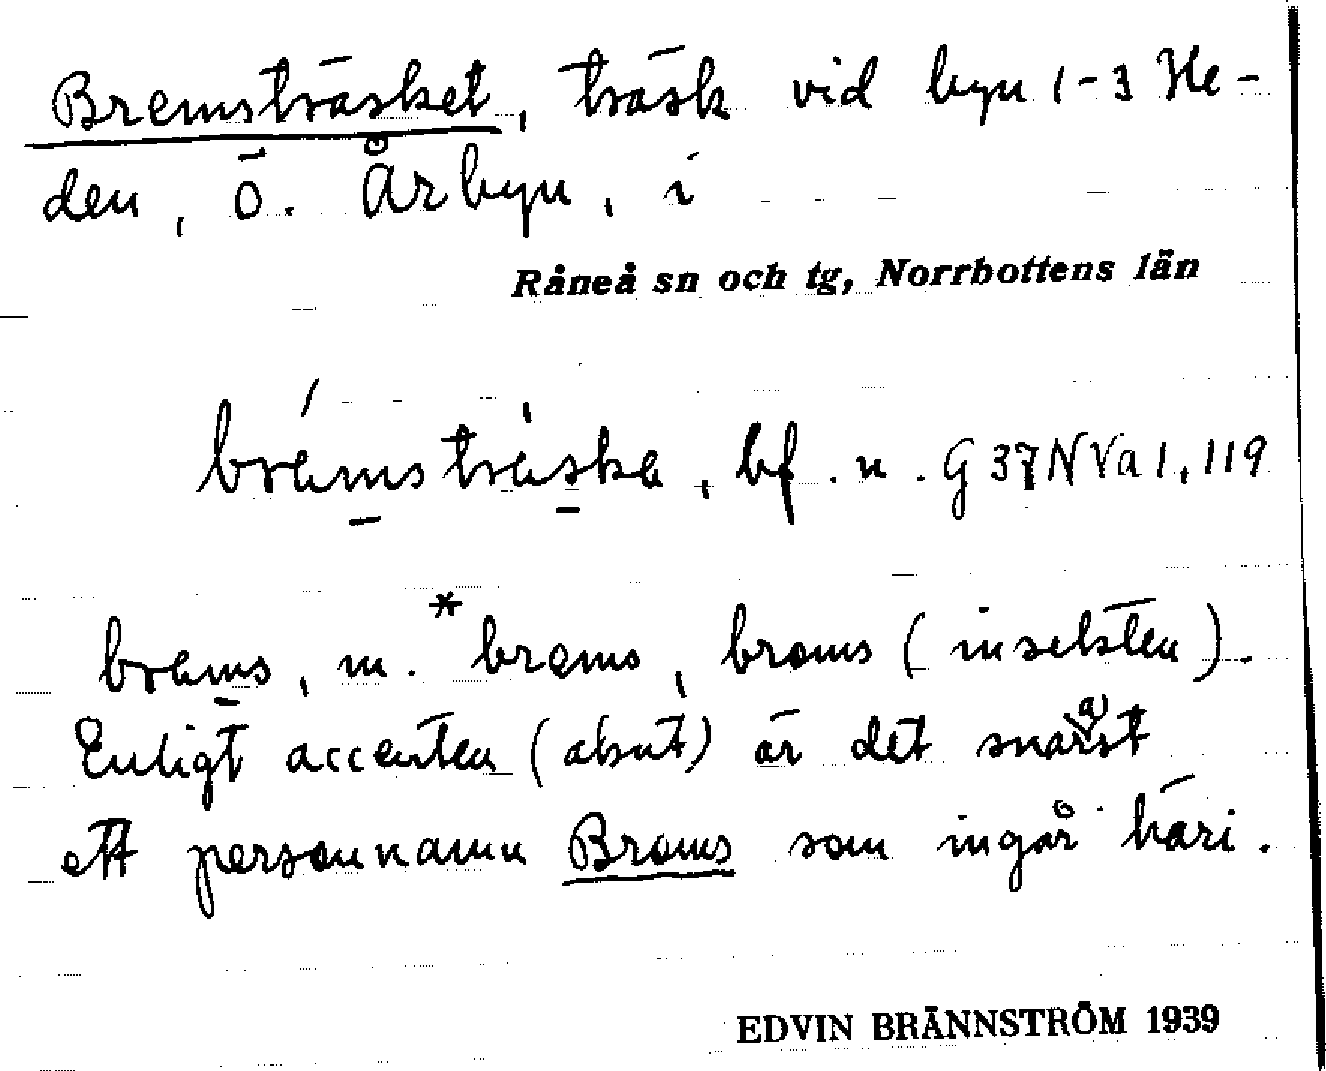 Bremsträsket, träsk vid byn 1-3 He-
den, ö. Årbyn, i
Råneå sn och tg, Norrbottens län
brämsträska, bf. n. G 37 N Va 1, 119
bräms, m. *brems, broms (insekten).
Enligt accenten (akut) är det snarast
ett personnamn Broms som ingår häri.
EDVIN BRÄNNSTRÖM 1939